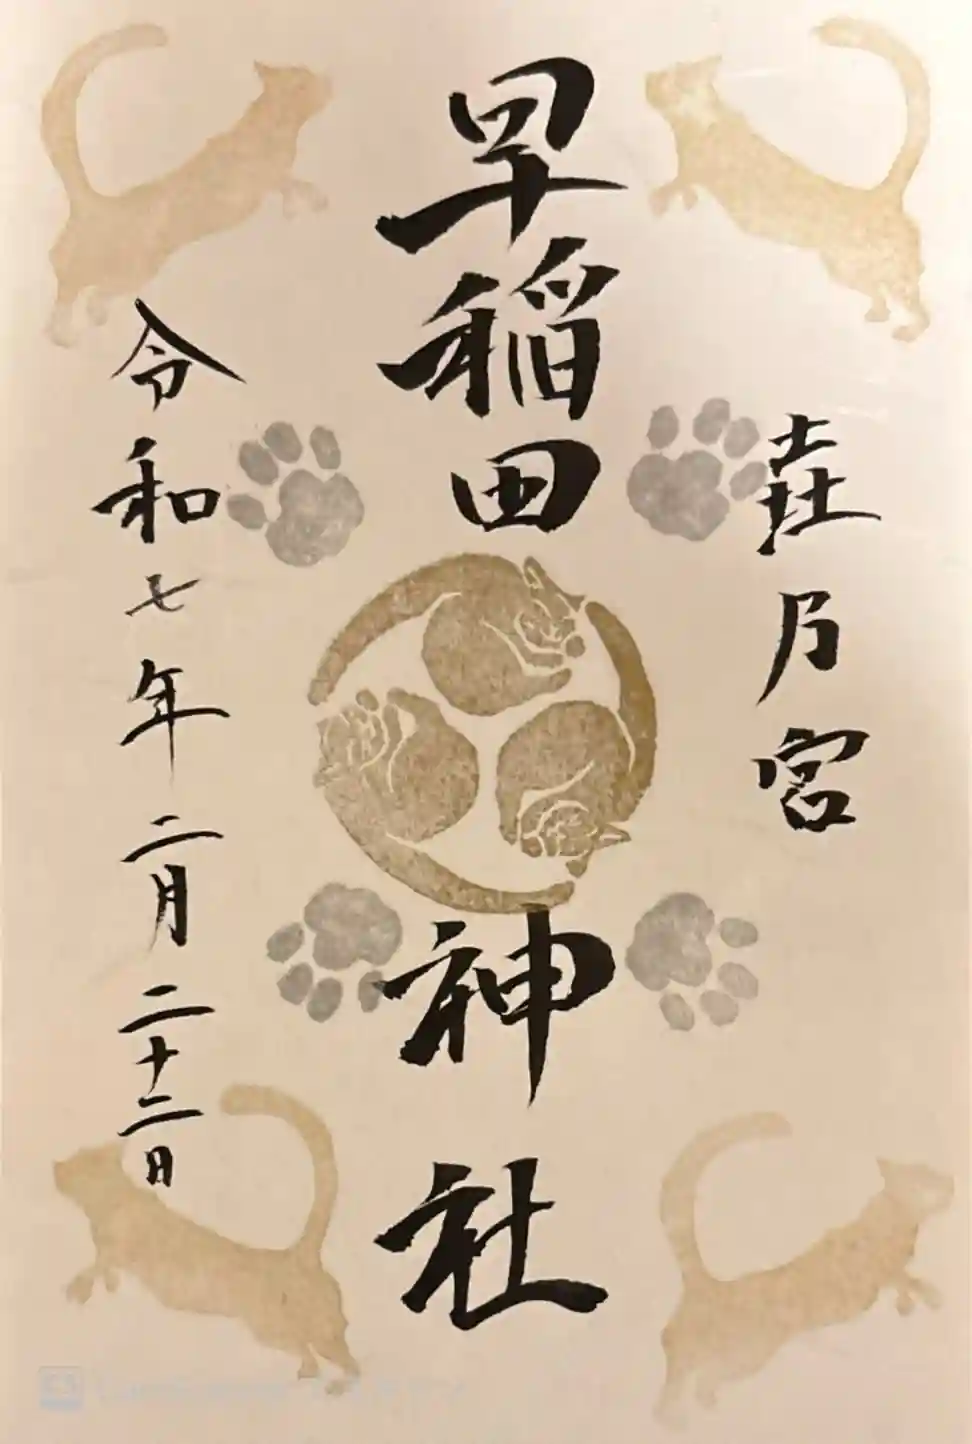 乃宮
早稲田
神社
令和七年二月二十二日
CS